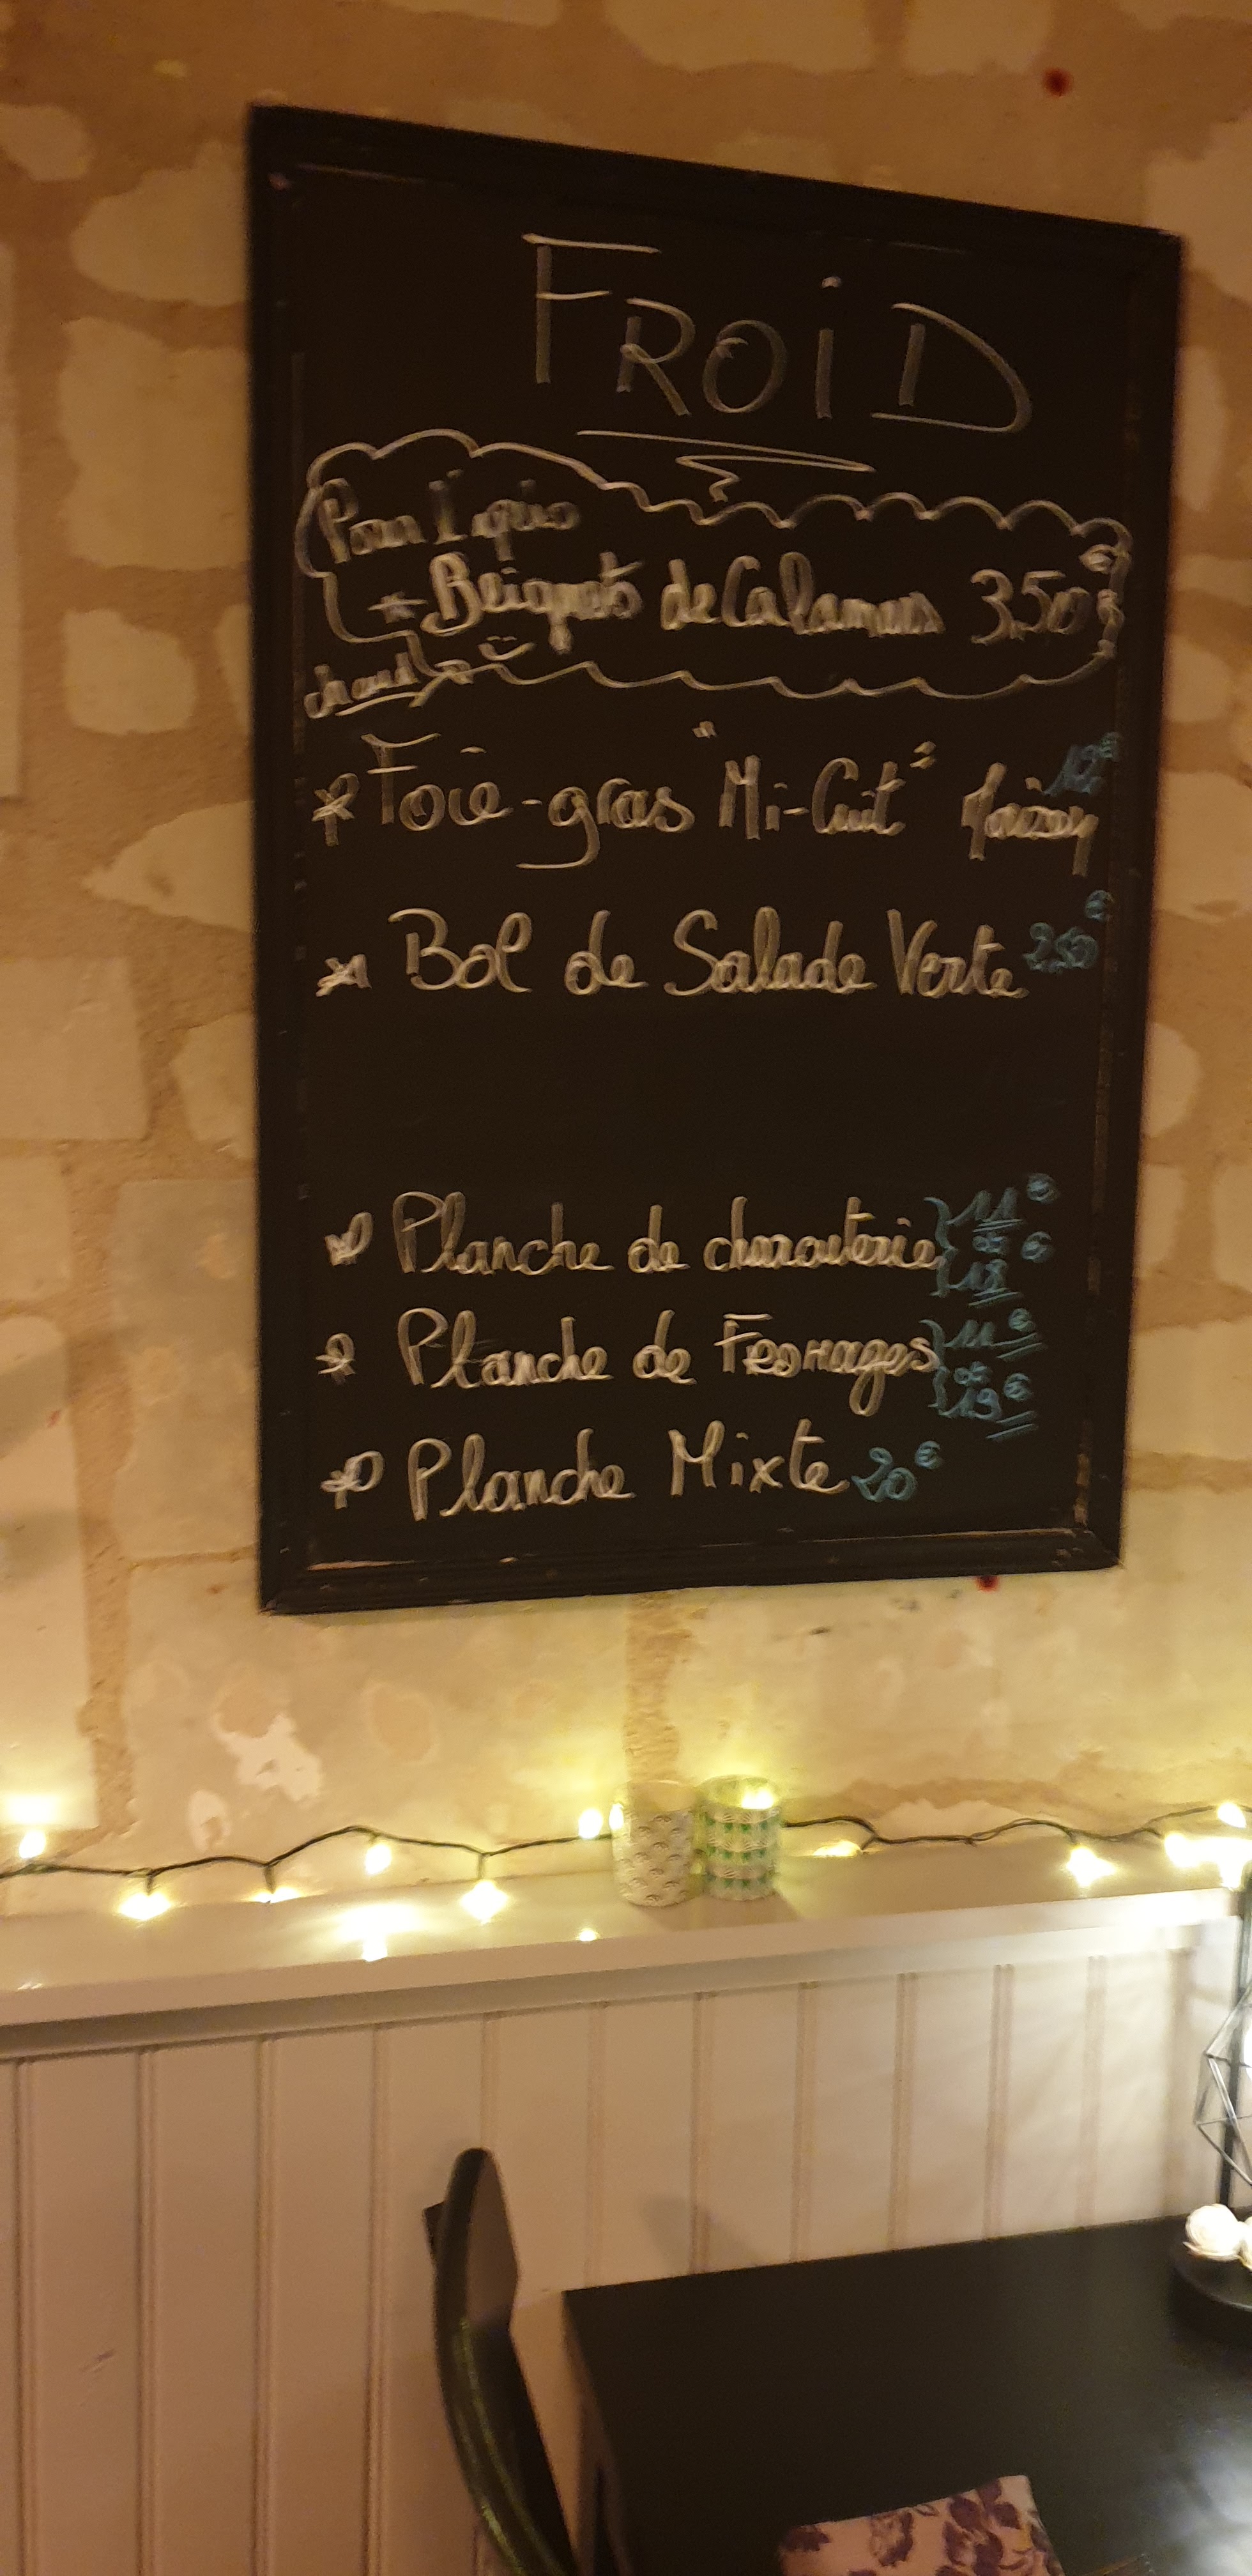 FROID
Pour l'apéro
Beignets de Calamars 3,50€
chaud
Foie-gras "Mi-Cuit" Maison 12€
Bol de Salade Verte 2,50€
Planche de charcuterie 11€
ou
18€
Planche de Fromages 11€
ou
19€
Planche Mixte 20€